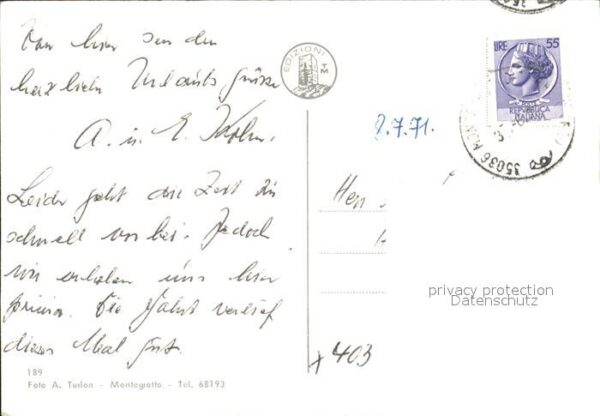 Von hier senden
herzliche Urlaubsgrüsse
A. u. E.
Leider geht die Zeit zu
schnell vorbei. Jedoch
wir erholen uns hier
prima. Die Fahrt verlief
dieses Mal gut.
189
Foto A. Turlon - Montegrotto - Tel. 68193
EDIZIONI
TM
LIRE 55
REPUBBLICA
ITALIANA
35036 MON
2.7.71.
Herr
privacy protection
Datenschutz
403